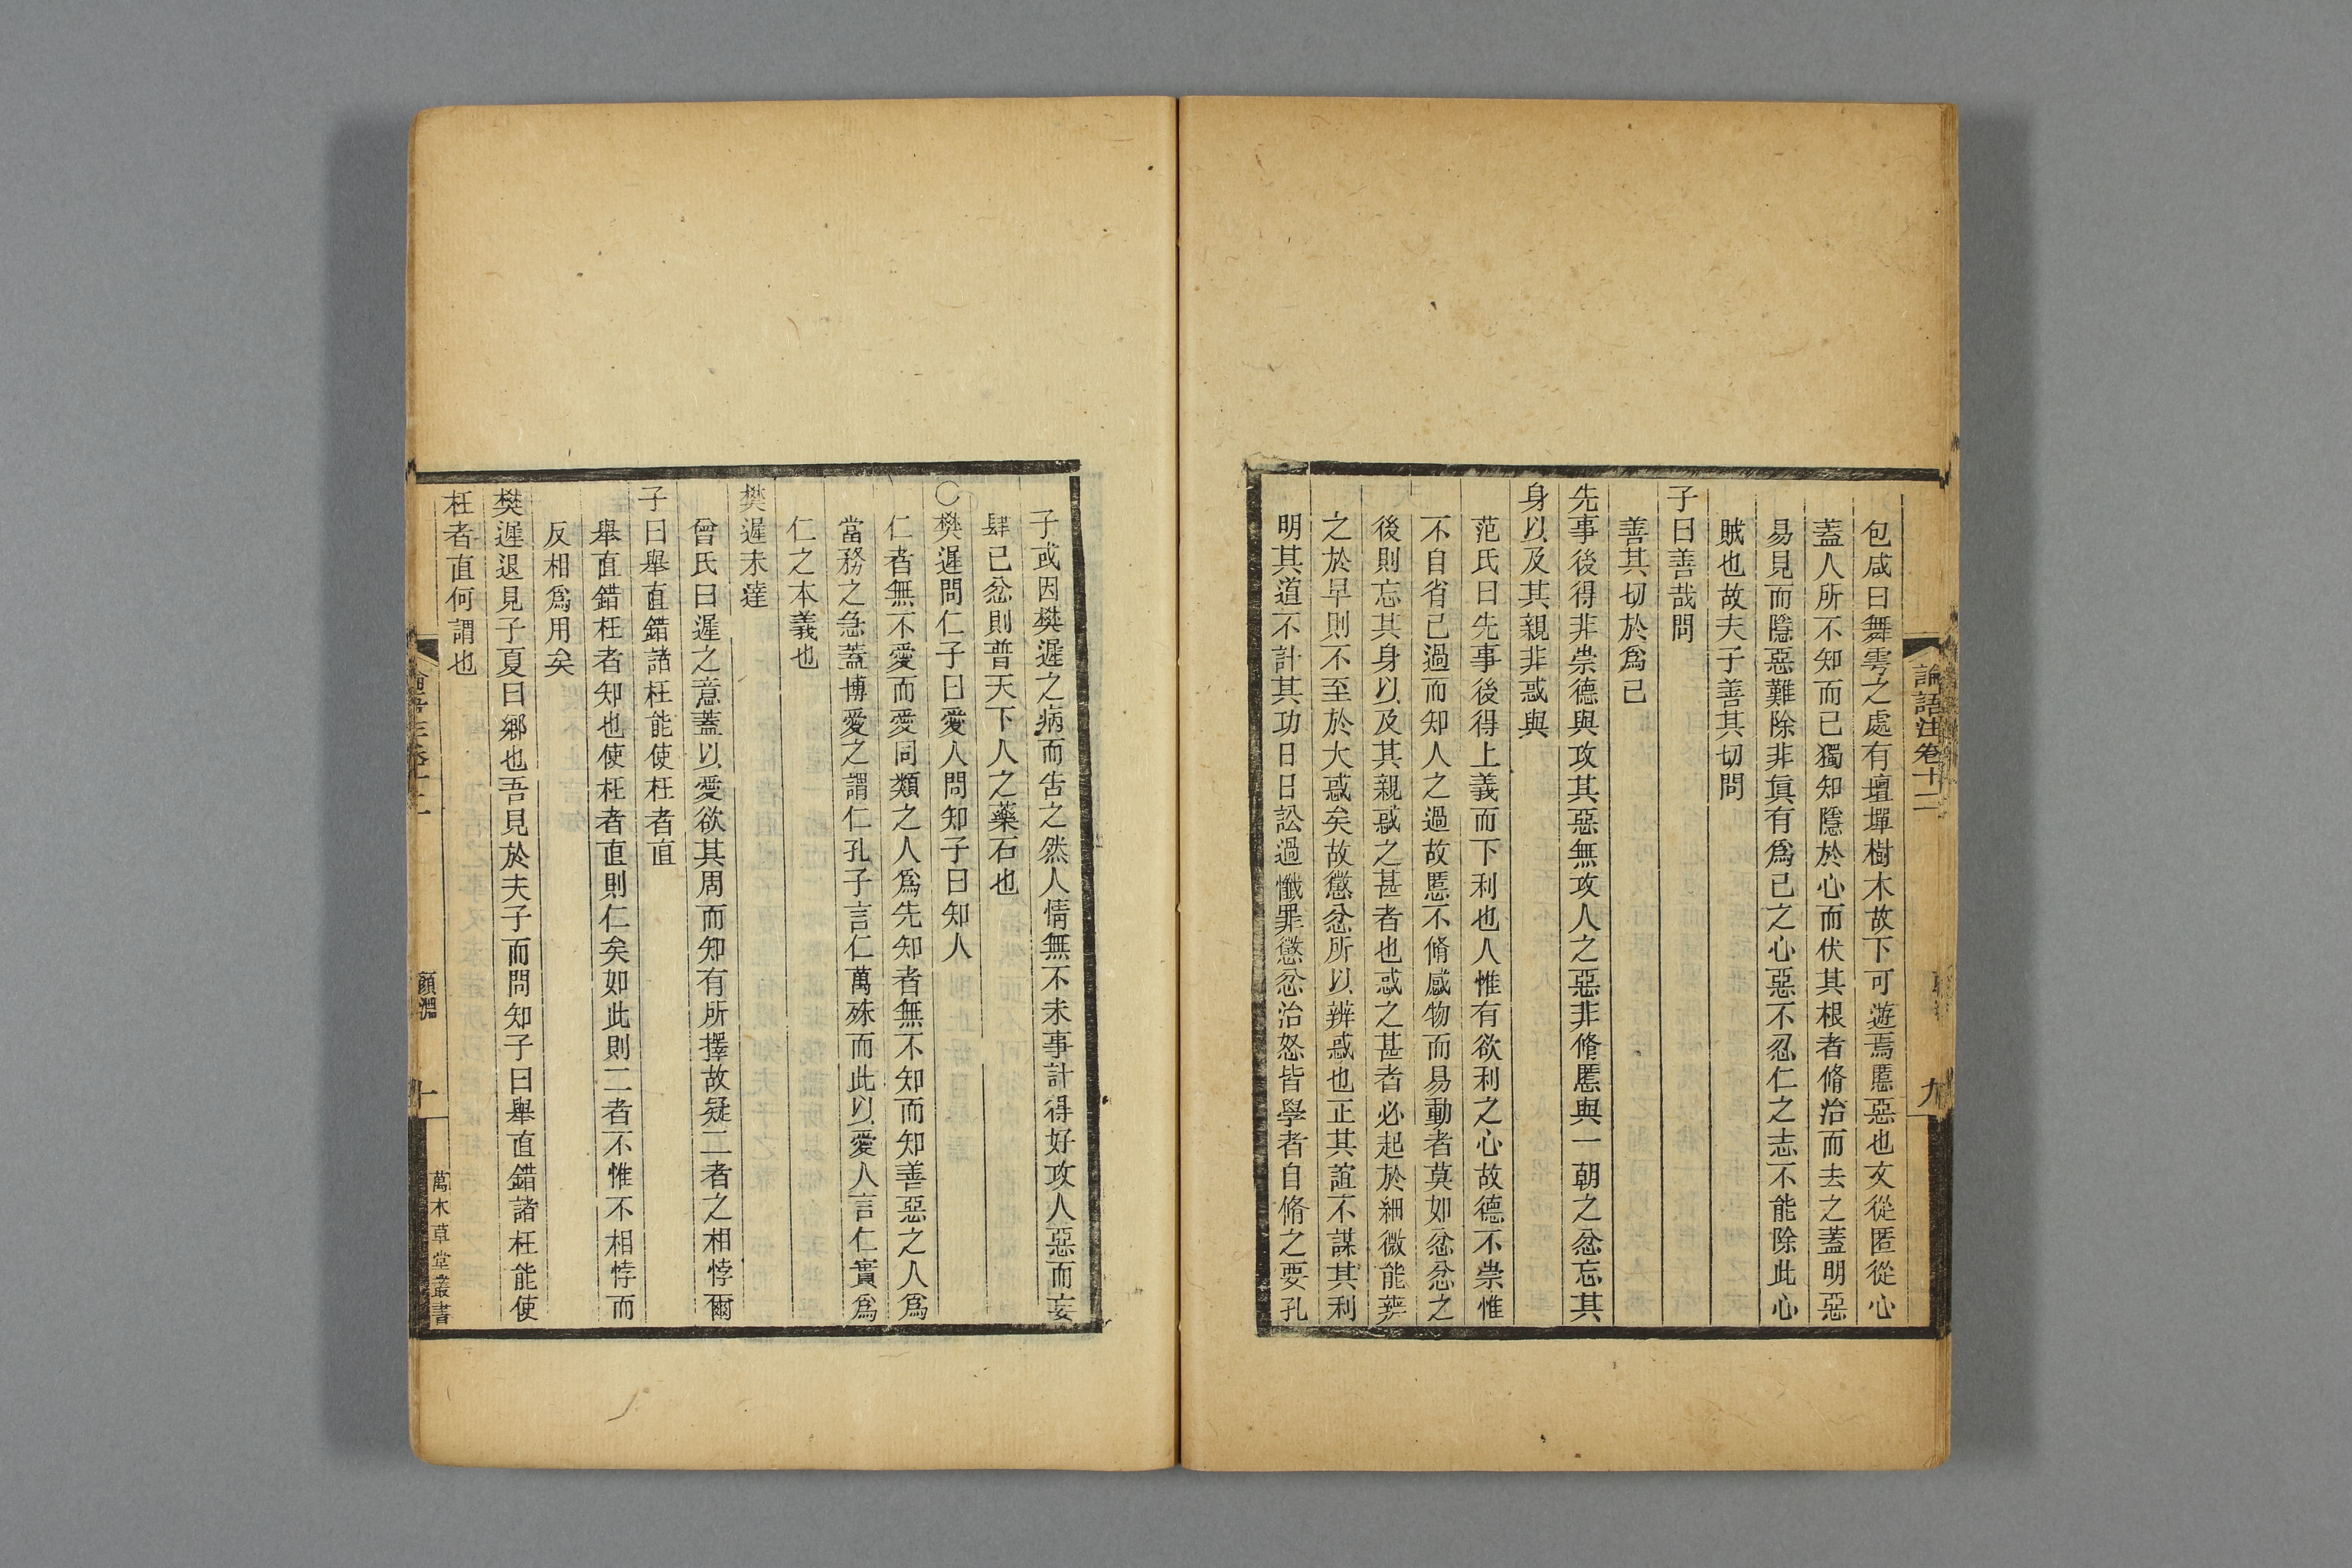 論語注卷十二
九
包咸曰舞雩之處有壇墠樹木故下可遊焉慝惡也文從匿從心
蓋人所不知而已獨知隱於心而伏其根者脩治而去之蓋明惡
易見而隱惡難除非眞有爲己之心惡不忍仁之志不能除此心
賊也故夫子善其切問
子曰善哉問
善其切於爲己
先事後得非崇德與攻其惡無攻人之惡非脩慝與一朝之忿忘其
身以及其親非惑與
范氏曰先事後得上義而下利也人惟有欲利之心故德不崇惟
不自省己過而知人之過故慝不脩感物而易動者莫如忿忿之
後則忘其身以及其親惑之甚者也惑之甚者必起於細微能辨
之於早則不至於大惑矣故懲忿所以辨惑也正其誼不謀其利
明其道不計其功日日訟過懺罪懲忿治怒皆學者自脩之要孔
子或因樊遲之病而告之然人情無不未事計得好攻人惡而妄
肆己忿則普天下人之藥石也
○樊遲問仁子曰愛人問知子曰知人
仁者無不愛而愛同類之人爲先知者無不知而知善惡之人爲
當務之急蓋博愛之謂仁孔子言仁萬殊而此以愛人言仁實爲
仁之本義也
樊遲未達
曾氏曰遲之意蓋以愛欲其周而知有所擇故疑二者之相悖爾
子曰舉直錯諸枉能使枉者直
舉直錯枉者知也使枉者直則仁矣如此則二者不惟不相悖而
反相爲用矣
樊遲退見子夏曰鄉也吾見於夫子而問知子曰舉直錯諸枉能使
枉者直何謂也
顏淵
十
萬木草堂叢書